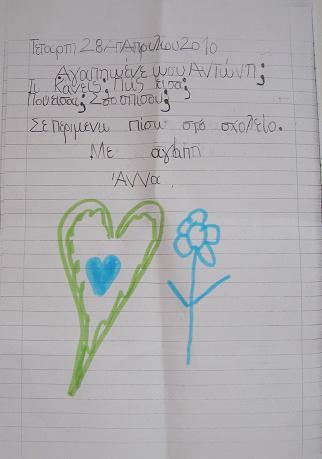 Τεταρτη 28 Απριλιου 2010
Αγαπημένε μου Αντώνη;
Τι κανεις; Πως εισαι;
Που εισαι; Στο σπίσου;
Σε περιμενω πισω στο σχολείο.
Με αγάπη
Άννα.